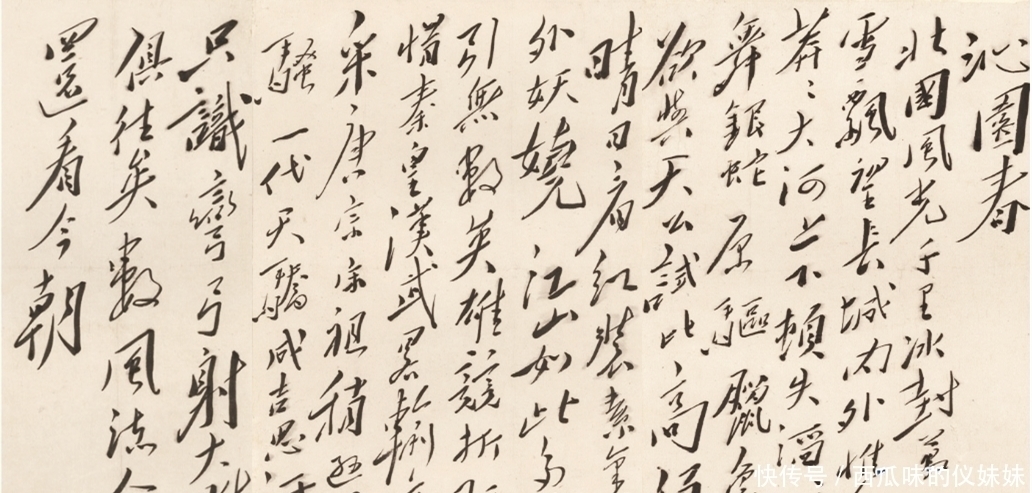 沁園春
北國風光千里冰封萬
雪飄望長城內外惟
莽〻大河上下頓失滔
舞銀蛇原驅臘象
欲與天公試比高須
晴日看紅裝素裹
外妖嬈江山如此多
引無數英雄競折
惜秦皇漢武略輸
采唐宗宋祖稍遜
騷一代天驕成吉思汗
只識彎弓射大
俱往矣數風流人
還看今朝
快传号 / 西瓜味的仪妹妹